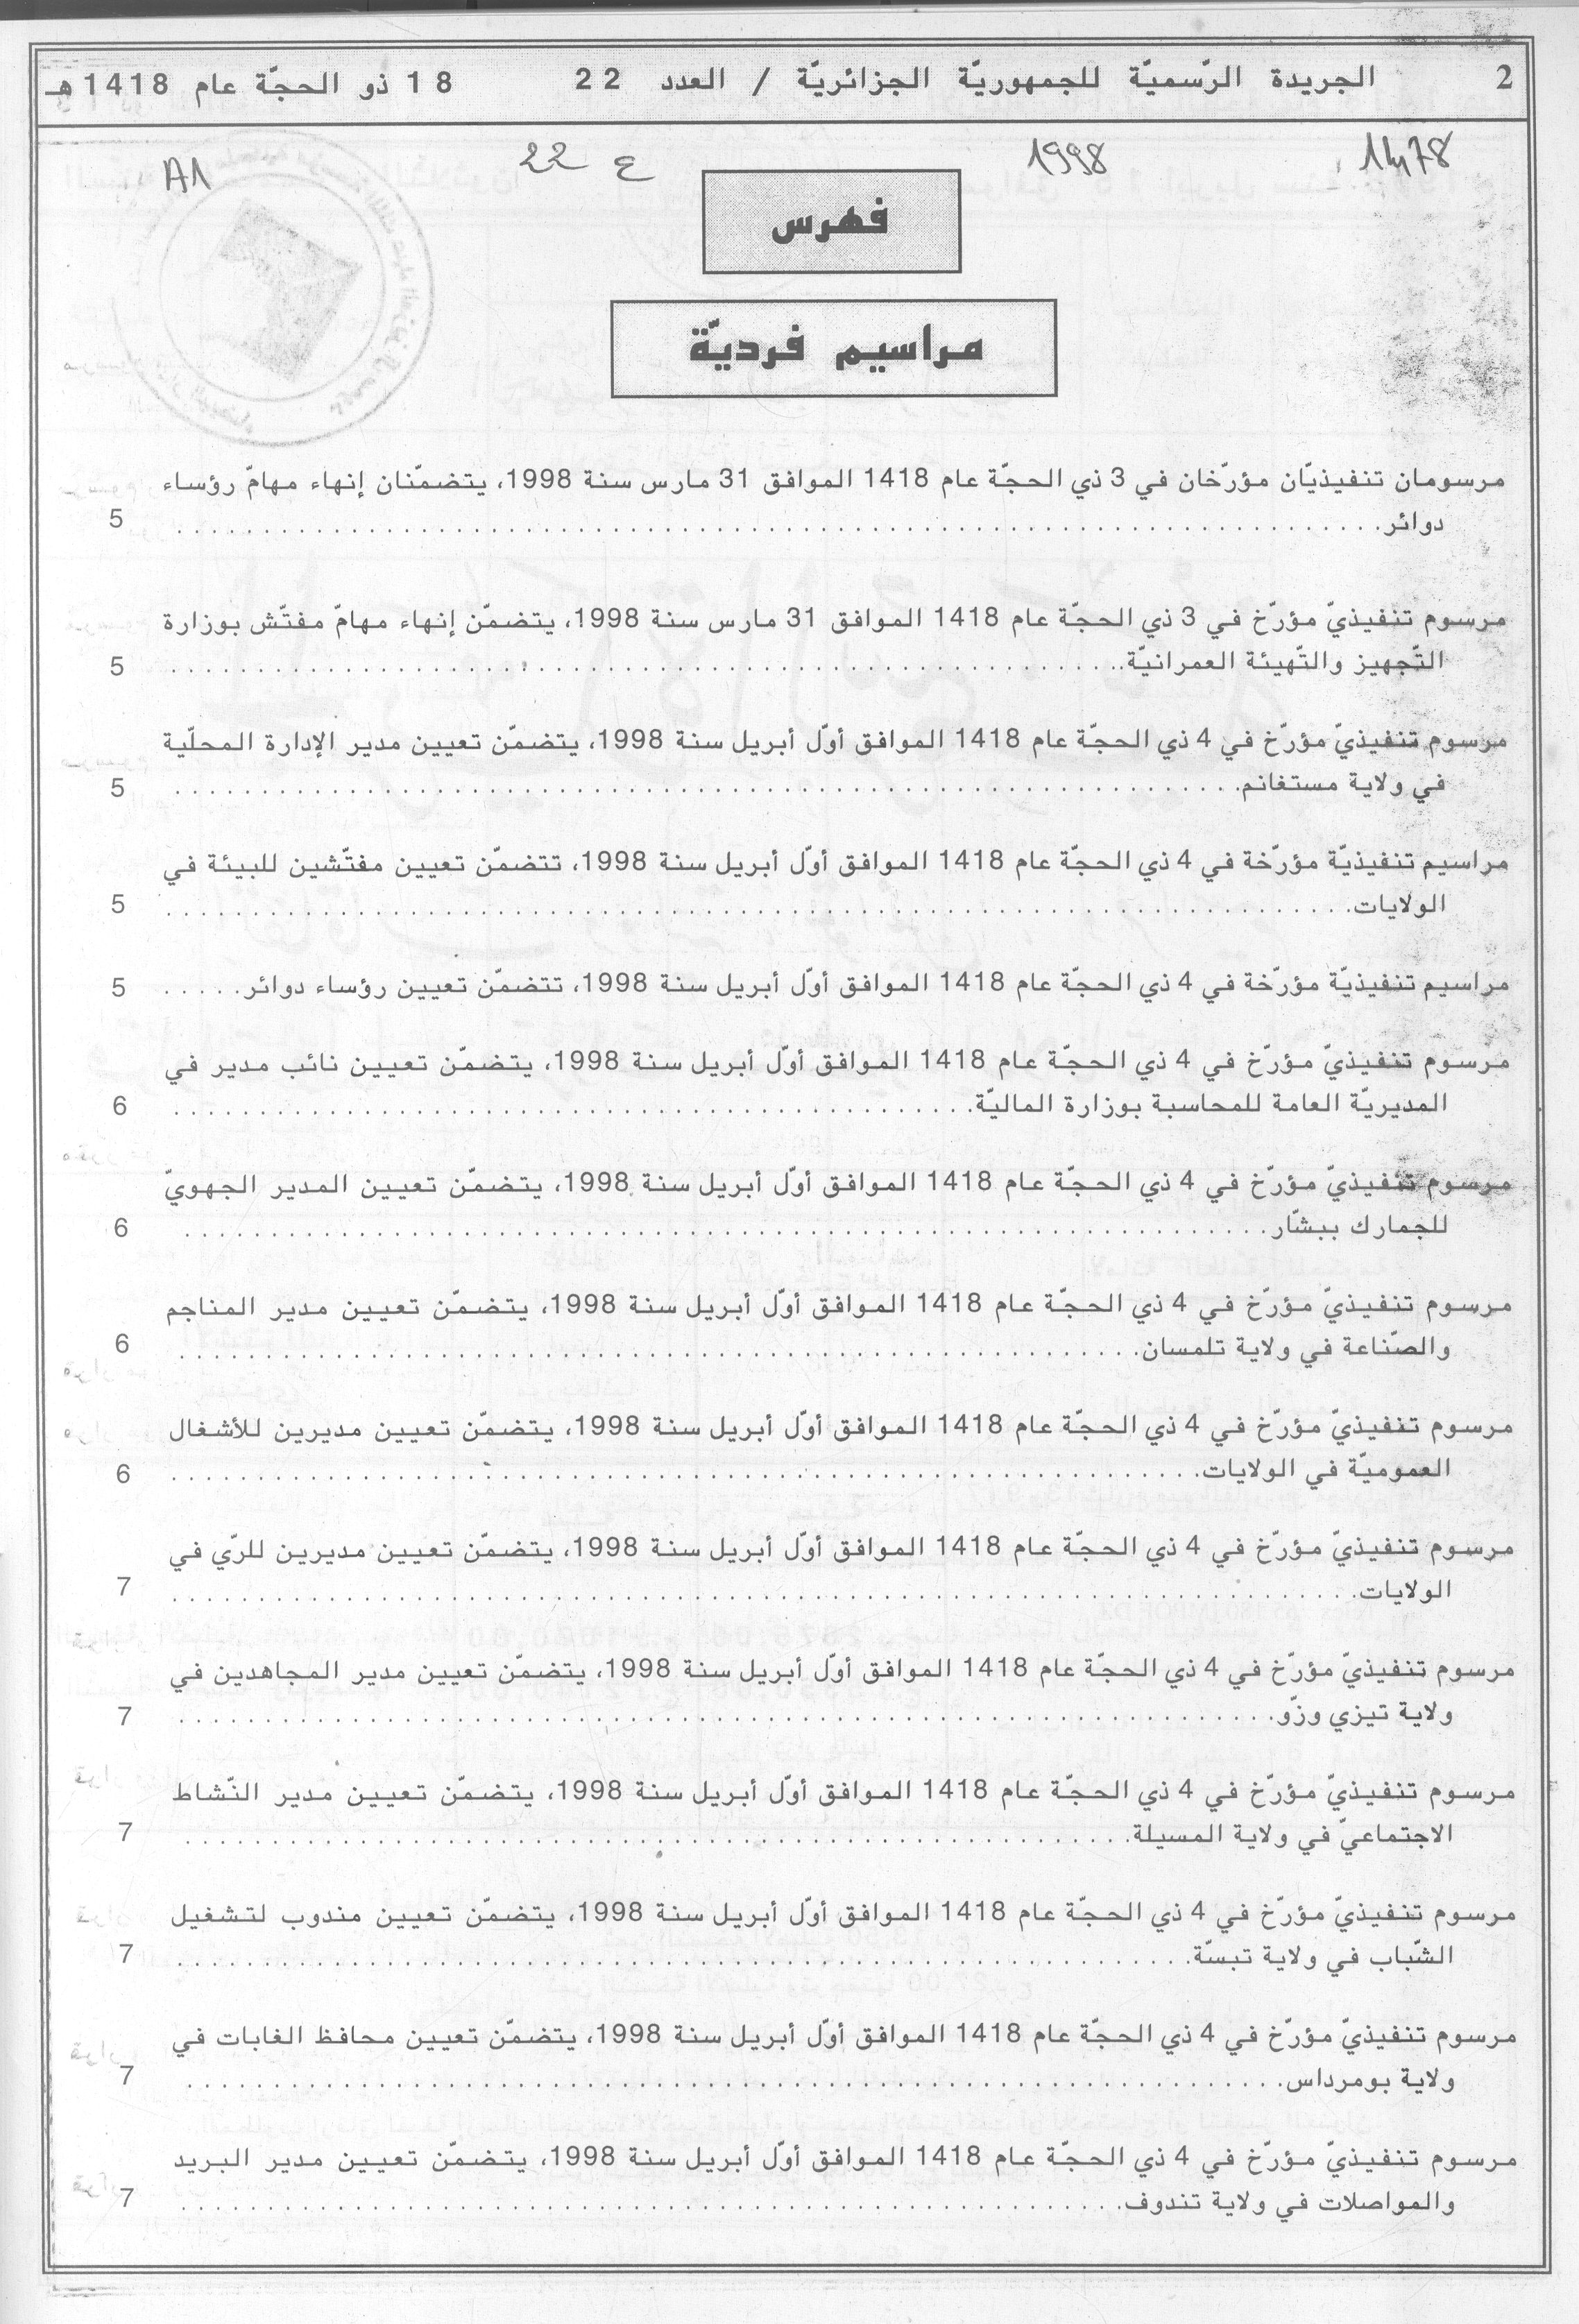 2 الجريدة الرّسميّة للجمهوريّة الجزائريّة / العدد 22 18 ذو الحجّة عام 1418 هـ
1998 ع 22 A1
فهرس
مراسيم فرديّة
مرسومان تنفيذيّان مؤرّخان في 3 ذي الحجّة عام 1418 الموافق 31 مارس سنة 1998، يتضمّنان إنهاء مهامّ رؤساء
دوائر. 5
مرسوم تنفيذيّ مؤرّخ في 3 ذي الحجّة عام 1418 الموافق 31 مارس سنة 1998، يتضمّن إنهاء مهامّ مفتّش بوزارة
التّجهيز والتّهيئة العمرانيّة. 5
مرسوم تنفيذيّ مؤرّخ في 4 ذي الحجّة عام 1418 الموافق أوّل أبريل سنة 1998، يتضمّن تعيين مدير الإدارة المحلّية
في ولاية مستغانم. 5
مراسيم تنفيذيّة مؤرّخة في 4 ذي الحجّة عام 1418 الموافق أوّل أبريل سنة 1998، تتضمّن تعيين مفتّشين للبيئة في
الولايات. 5
مراسيم تنفيذيّة مؤرّخة في 4 ذي الحجّة عام 1418 الموافق أوّل أبريل سنة 1998، تتضمّن تعيين رؤساء دوائر. 5
مرسوم تنفيذيّ مؤرّخ في 4 ذي الحجّة عام 1418 الموافق أوّل أبريل سنة 1998، يتضمّن تعيين نائب مدير في
المديريّة العامة للمحاسبة بوزارة الماليّة. 6
مرسوم تنفيذيّ مؤرّخ في 4 ذي الحجّة عام 1418 الموافق أوّل أبريل سنة 1998، يتضمّن تعيين المدير الجهويّ
للجمارك ببشّار. 6
مرسوم تنفيذيّ مؤرّخ في 4 ذي الحجّة عام 1418 الموافق أوّل أبريل سنة 1998، يتضمّن تعيين مدير المناجم
والصّناعة في ولاية تلمسان. 6
مرسوم تنفيذيّ مؤرّخ في 4 ذي الحجّة عام 1418 الموافق أوّل أبريل سنة 1998، يتضمّن تعيين مديرين للأشغال
العموميّة في الولايات. 6
مرسوم تنفيذيّ مؤرّخ في 4 ذي الحجّة عام 1418 الموافق أوّل أبريل سنة 1998، يتضمّن تعيين مديرين للرّي في
الولايات. 7
مرسوم تنفيذيّ مؤرّخ في 4 ذي الحجّة عام 1418 الموافق أوّل أبريل سنة 1998، يتضمّن تعيين مدير المجاهدين في
ولاية تيزي وزّو. 7
مرسوم تنفيذيّ مؤرّخ في 4 ذي الحجّة عام 1418 الموافق أوّل أبريل سنة 1998، يتضمّن تعيين مدير النّشاط
الاجتماعيّ في ولاية المسيلة. 7
مرسوم تنفيذيّ مؤرّخ في 4 ذي الحجّة عام 1418 الموافق أوّل أبريل سنة 1998، يتضمّن تعيين مندوب لتشغيل
الشّباب في ولاية تبسّة. 7
مرسوم تنفيذيّ مؤرّخ في 4 ذي الحجّة عام 1418 الموافق أوّل أبريل سنة 1998، يتضمّن تعيين محافظ الغابات في
ولاية بومرداس. 7
مرسوم تنفيذيّ مؤرّخ في 4 ذي الحجّة عام 1418 الموافق أوّل أبريل سنة 1998، يتضمّن تعيين مدير البريد
والمواصلات في ولاية تندوف. 7